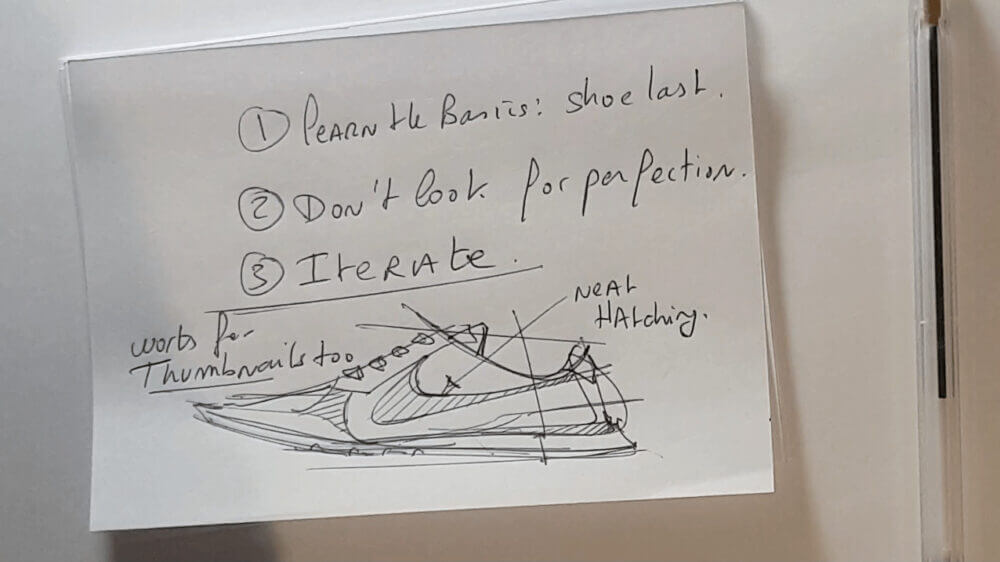 ① Learn the Basics: shoe last.
② Don't look for perfection.
③ Iterate.
works for
Thumbnails too
Neat
Hatching.